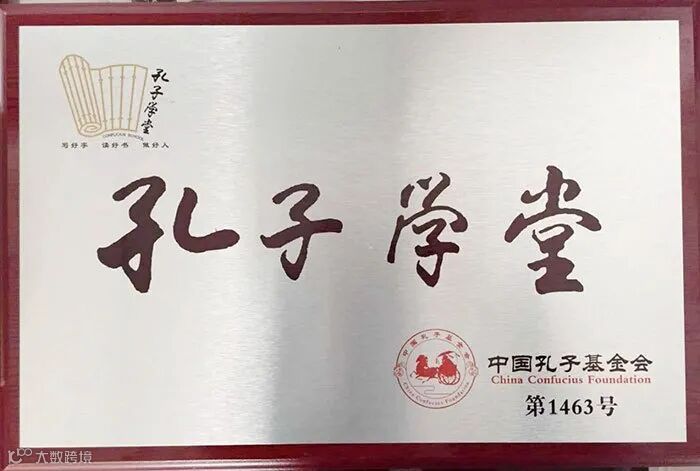 孔子学堂
CONFUCIUS SCHOOL
写好字 读好书 做好人
孔子学堂
中国孔子基金会
China Confucius Foundation
中国孔子基金会
China Confucius Foundation
第1463号
大数跨境